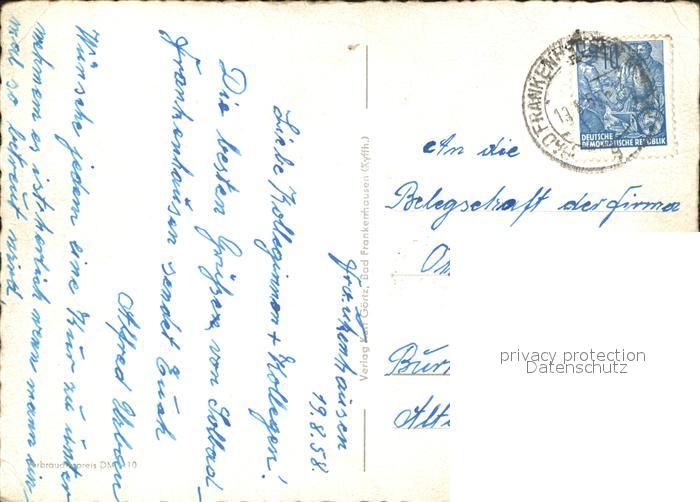 Frankenhausen
19.8.58.
Liebe Kolleginnen + Kollegen!
Die besten Grüße von Solbad-
Frankenhausen sendet Euch
Alfred Urban
Wünsche jedem eine Kur zu unter
nehmen es ist herlich wenn mann ein
mal so betreut wird.
Verlag Karl Görtz, Bad Frankenhausen (Kyffh.)
Verbraucherpreis DM 10
BAD FRANKENH
10
DEUTSCHE
DEMOKRATISCHE REPUBLIK
An die
Belegschaft der Firma
Bur
Alt
privacy protection
Datenschutz